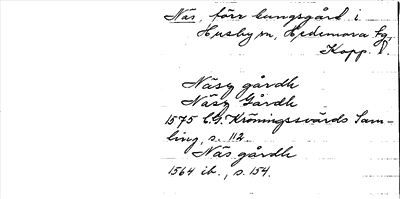 Näs, förr kungsgård i
Husby sn, Hedemora fg,
Kopp. l.
Näsz gårdh
Näsz Gårdh
1575 C.G. Kröningssvärds Sam-
ling, s. 112.
Näs gårdh
1564 ib., s. 154.